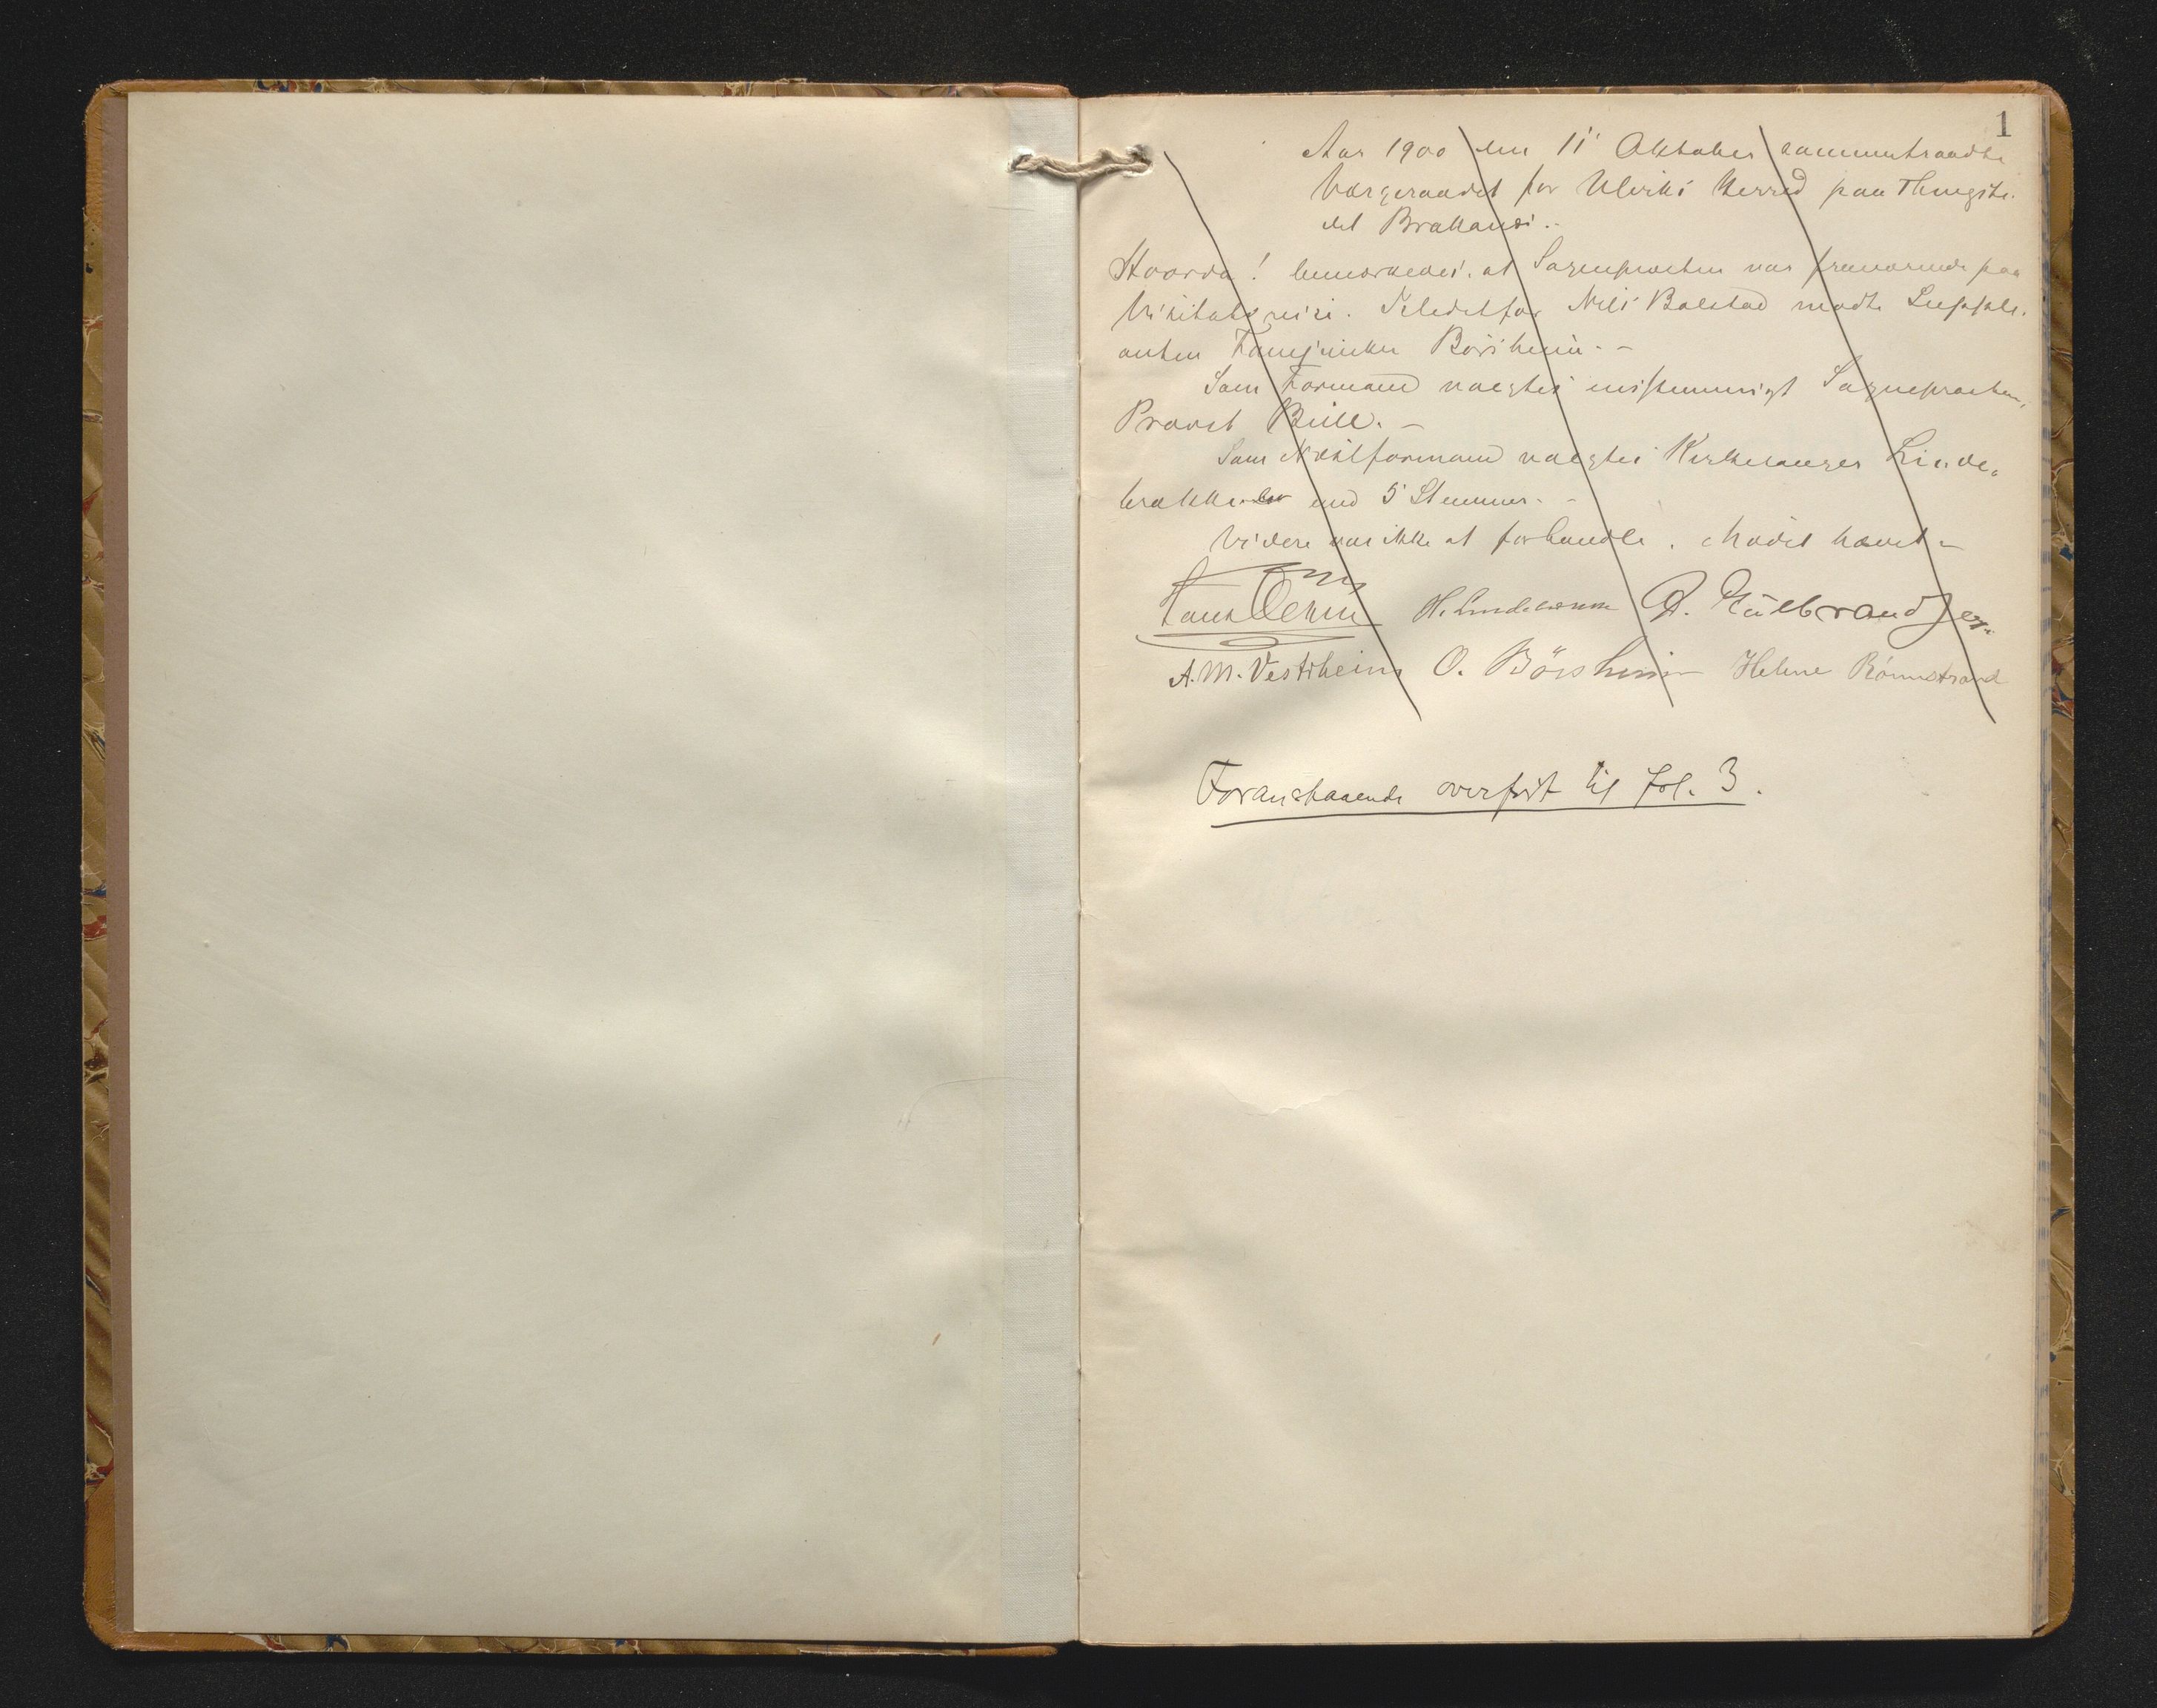 1
Aar 1900 den 11' Oktober sammentraadte
Værgeraadet for Ulviks Herred paa Thingste-
det Brakanæs.-
Hvorda! bemærkedes, at Sognepræsten var fraværende paa
Visitatsreise. Istedetfor Nils Bolstad mødte Supple-
anten Børsheim. -
Som Formand valgtes enstemmigt Sognepræsten,
Provst Bull. -
Som Næstformand valgtes Kirkesanger Linde-
brække med 5 Stemmer. -
Videre var ikke at forhandle. Mødet hævet -
Hans H. Lindebrække Gulbrandsen.
A. M. Vestrheim O. Børsheim Helene Rønnestrand
Foranstaaende overført til fol. 3.